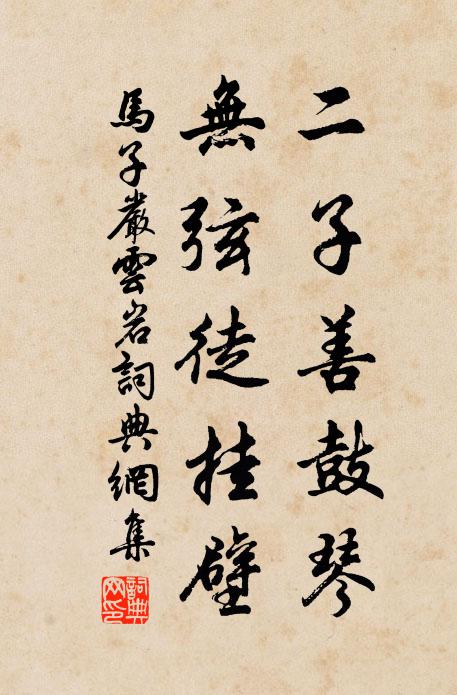 二子善鼓琴
無弦徒挂壁
馬子嚴雲岩詞典網集
詞典网印